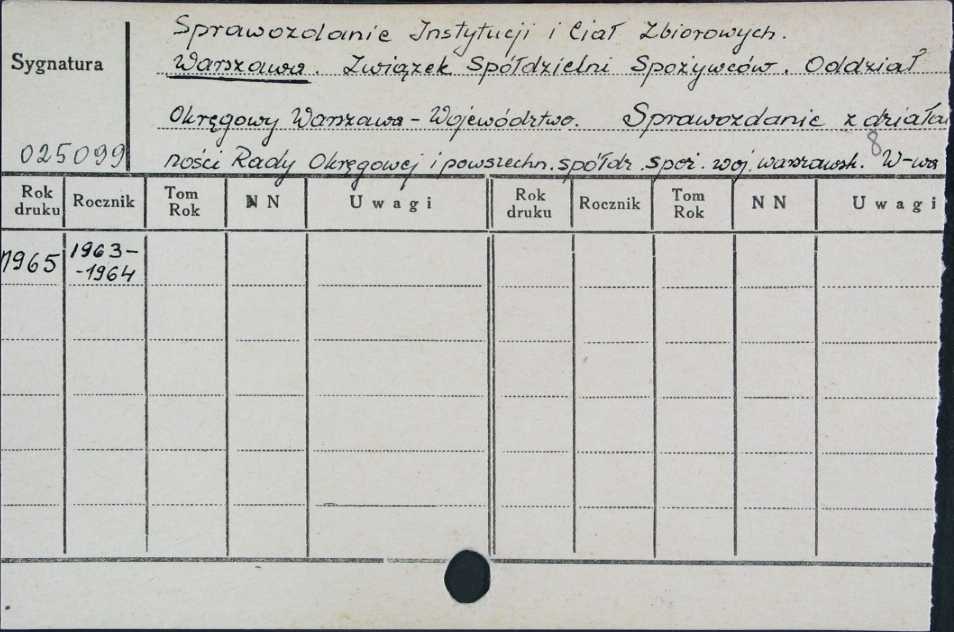 Sprawozdanie Instytucji i Ciał Zbiorowych.
Sygnatura
Warszawa. Związek Spółdzielni Spożywców. Oddział
Okręgowy Warszawa - Województwo. Sprawozdanie z działal
025099
ności Rady Okręgowej i powszechn. spółdz. spoż. woj. warszawsk. 8 W-wa
Rok druku Rocznik Tom Rok NN Uwagi Rok druku Rocznik Tom Rok NN Uwagi
1965 1963-
-1964